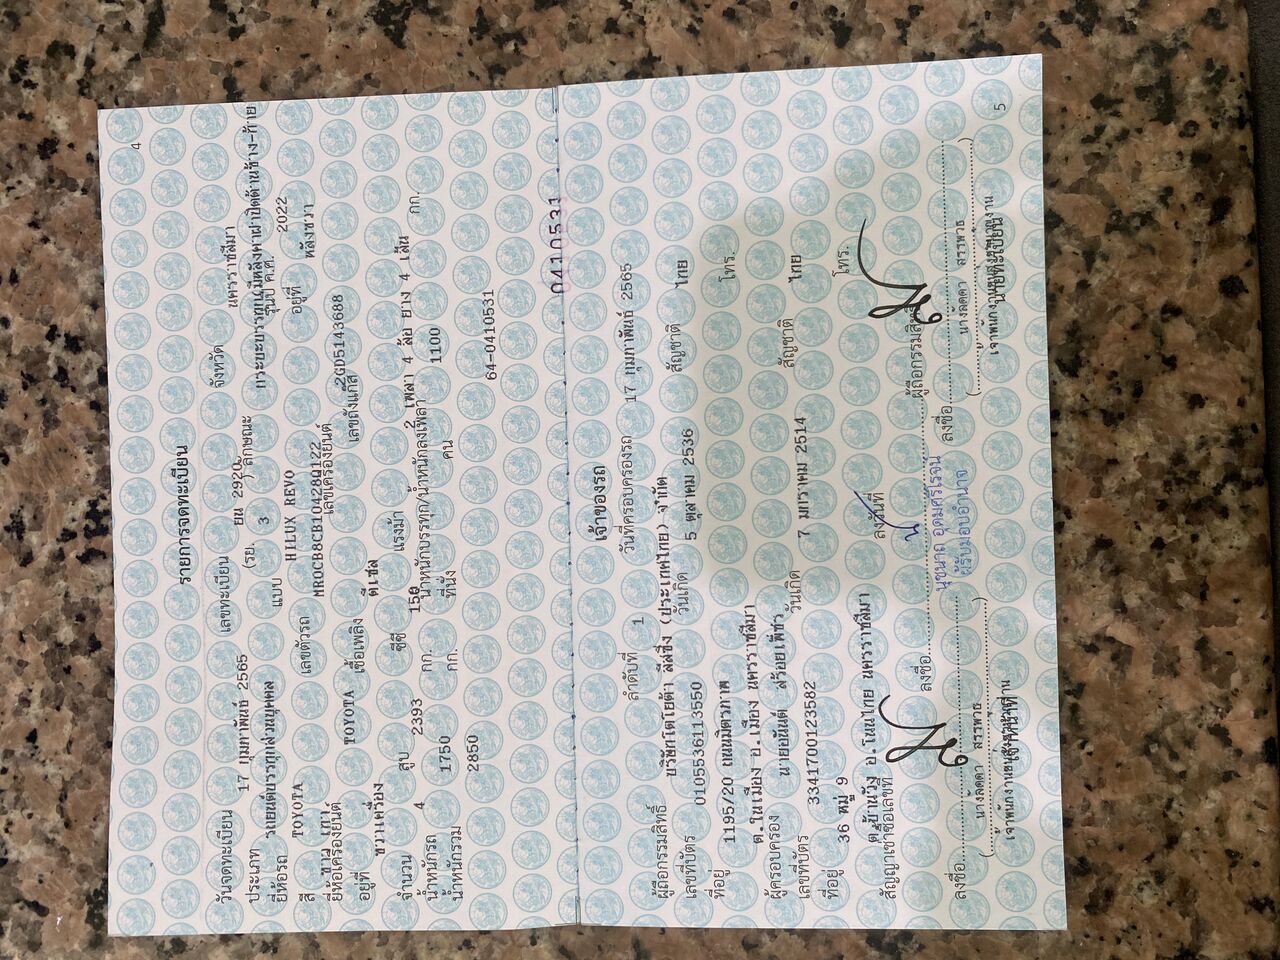 4
รายการจดทะเบียน
วันจดทะเบียน 17 กุมภาพันธ์ 2565 เลขทะเบียน ยน 2920 จังหวัด นครราชสีมา
ประเภท รถยนต์บรรทุกส่วนบุคคล (รย. 3 ) ลักษณะ กระบะบรรทุก(มีหลังคาฝาปิดด้านข้าง-ท้าย
ยี่ห้อรถ TOYOTA แบบ HILUX REVO รุ่นปี ค.ศ. 2022
สี ขาว เทา เลขตัวรถ MR0CB8CB104280122 อยู่ที่ หลังขวา
ยี่ห้อเครื่องยนต์ TOYOTA เลขเครื่องยนต์ 2GD5143688
อยู่ที่ ขวาเครื่อง เชื้อเพลิง ดีเซล เลขถังแก๊ส
จำนวน 4 สูบ 2393 ซีซี 150 แรงม้า 2 เพลา 4 ล้อ ยาง 4 เส้น
น้ำหนักรถ 1750 กก. น้ำหนักบรรทุก/น้ำหนักลงเพลา 1100 กก.
น้ำหนักรวม 2850 กก. ที่นั่ง คน
64-0410531
0410531
เจ้าของรถ
ลำดับที่ 1 วันที่ครอบครองรถ 17 กุมภาพันธ์ 2565
ผู้ถือกรรมสิทธิ์ บริษัทโตโยต้า ลีสซิ่ง (ประเทศไทย) จำกัด
เลขที่บัตร 0105536113550 วันเกิด 5 ตุลาคม 2536 สัญชาติ ไทย
ที่อยู่ 1195/20 ถนนมิตรภาพ
ต.ในเมือง อ.เมือง นครราชสีมา โทร.
ผู้ครอบครอง นายอนันต์ สร้อยเพ็ชร
เลขที่บัตร 3341700123582 วันเกิด 7 มกราคม 2514 สัญชาติ ไทย
ที่อยู่ 36 หมู่ 9
ต.บ้านวัง อ.โนนไทย นครราชสีมา โทร.
สัญญาเช่าซื้อเลขที่ ลงวันที่
ลงชื่อ ผู้ถือกรรมสิทธิ์
นุชนาถ อุดมศรีโรจน์
ผู้รับมอบอำนาจ
ลงชื่อ ลงชื่อ
นางลัดดา สรรพวธ นางลัดดา สรรพวธ
( ) ( )
เจ้าหน้าที่ นายทะเบียน
5